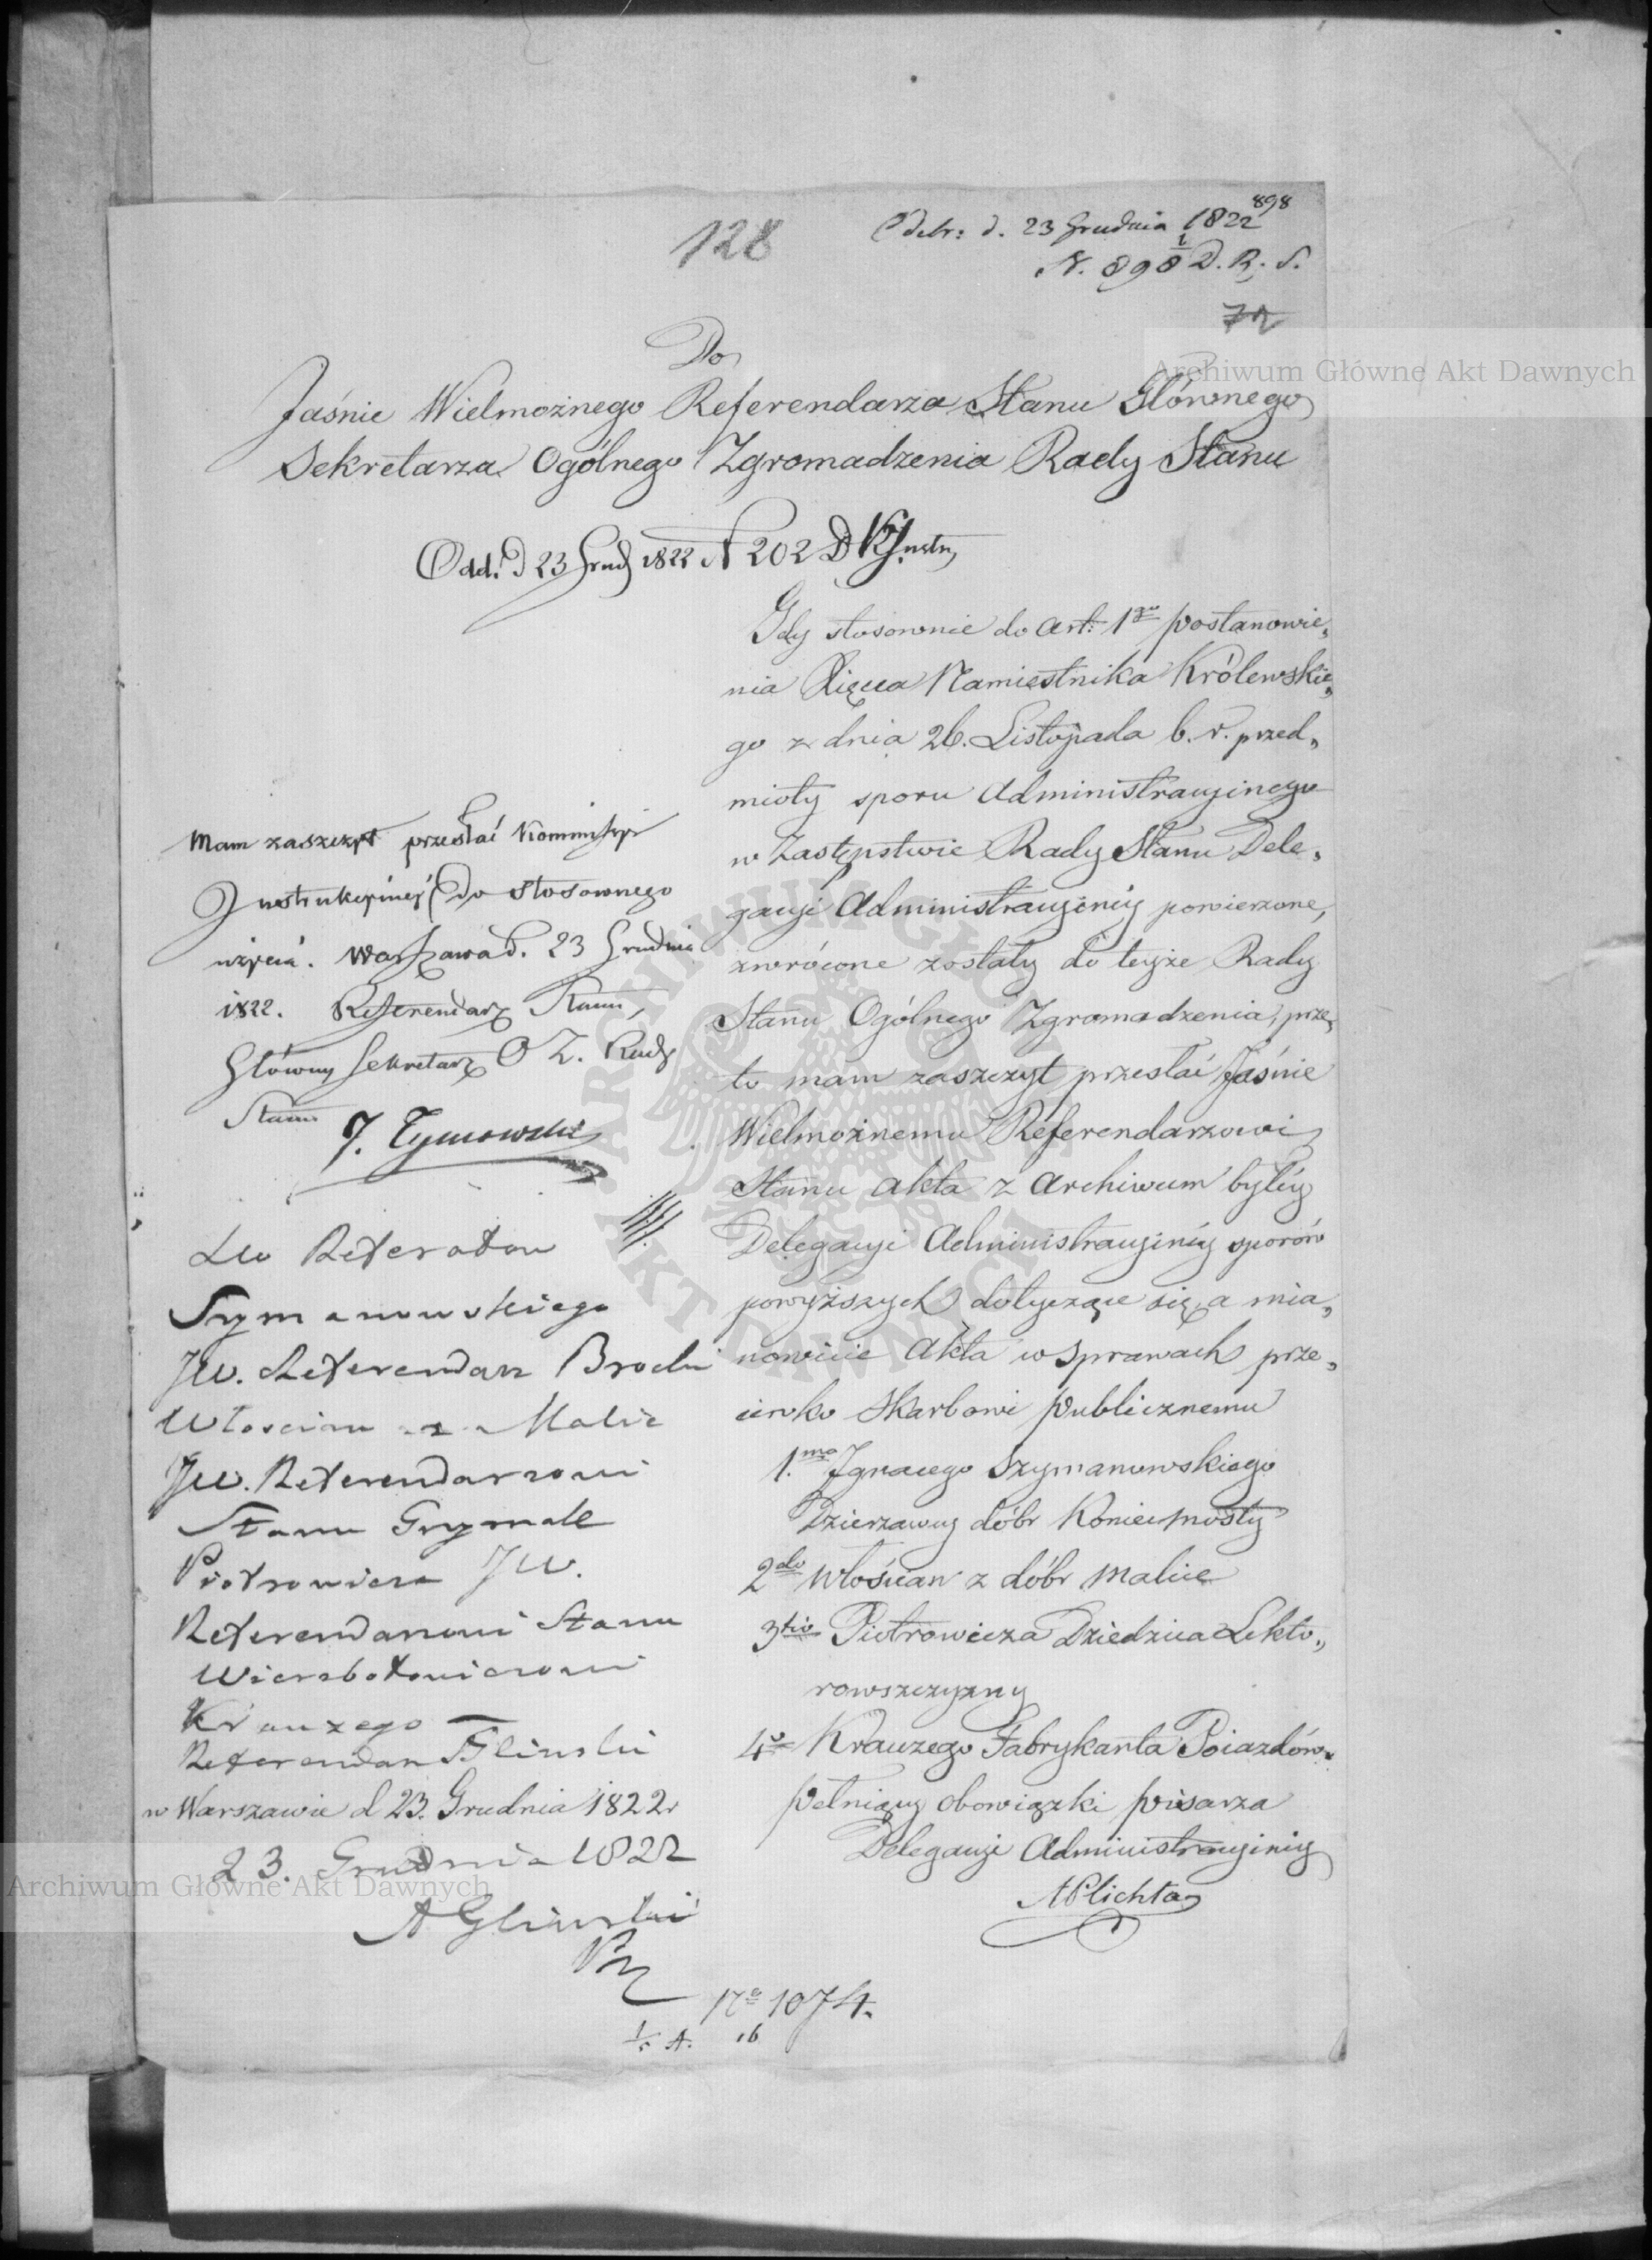 128
Odebr: d. 23 Grudnia 1822
898
N. 898 D. R. S.
72
Do
Jaśnie Wielmożnego Referendarza Stanu Głównego
Sekretarza Ogólnego Zgromadzenia Rady Stanu
Odd. d 23 Grud 1822 N 202 D K Instr
Gdy stosownie do art: 1go postanowie„
nia Xięcia Namiestnika Królewskie„
go z dnia 26. Listopada b. r. przed„
mioty sporu Administracyinego
w Zastępstwie Rady Stanu Dele„
gacyi Administracyinéy powierzone,
zwrócone zostały do teyże Rady
Stanu Ogólnego Zgromadzenia, prze„
to mam zaszczyt przesłać Jaśnie
Wielmożnemu Referendarzowi
Stanu akta z Archiwum byłéy
Delegacyi Administracyinéy sporów
powyższych dotyczące się, a mia„
nowicie Akta w sprawach prze„
ciwko Skarbowi publicznemu
1.mo Ignacego Szymanowskiego
Dzierżawcy dóbr Koniecmosty
2do Włościan z dóbr Malice
3tio Piotrowicza Dziedzica Lekto„
rowszczyzny
4o Krauzego Fabrykanta Poiazdów.
pełniący obowiązki pisarza
Delegacyi Administracyinéy
A Plichta
Mam zaszczyt przesłać Kommissyi
Instrukcyinéy do stosownego
użycia. Warszawa d. 23 Grudnia
1822. Referendarz Stanu,
Główny Sekretarz O Z. Rady
Stanu J. Tymowski
Szymanowskiego
JW. Referendarz Brocki
Włościan z Malic
JW. Referendarzowi
Stanu Grzymale
Piotrowicza JW.
Referendarzowi Stanu
Wierzbołowiczowi
Krauzego
Referendarz Gliński
w Warszawie d 23. Grudnia 1822r
23. Grudnia 1822
A Gliński
No 1074.
16
Archiwum Główne Akt Dawnych
Archiwum Główne Akt Dawnych
ARCHIWUM GŁÓWNE AKT DAWNYCH